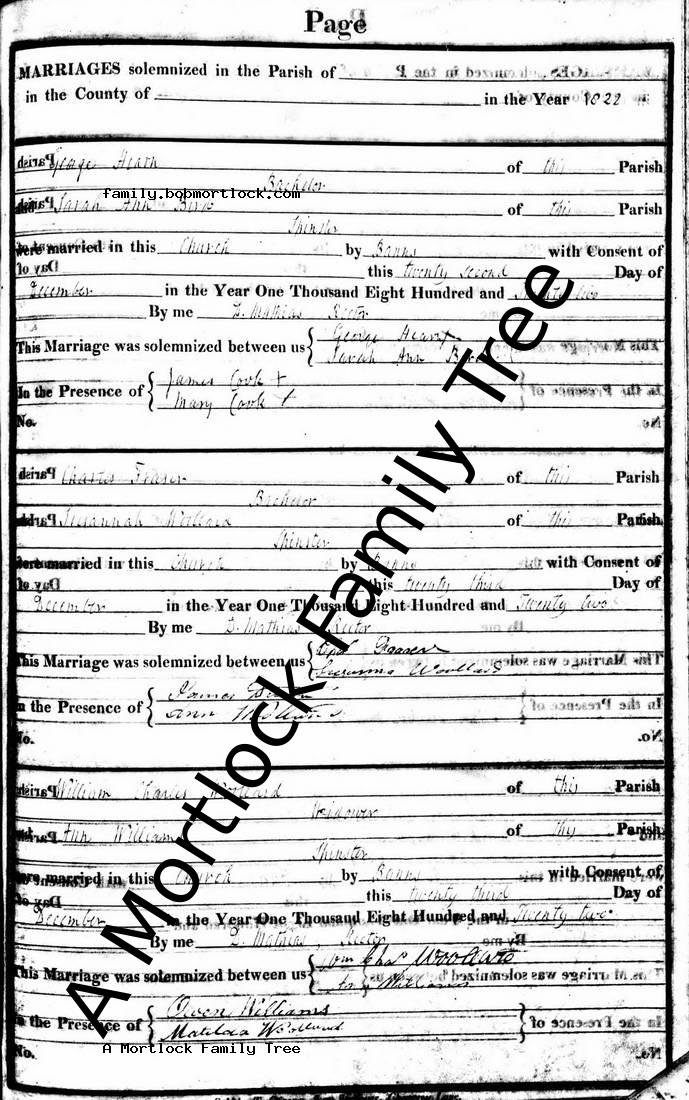 Page
MARRIAGES solemnized in the Parish of
in the County of in the Year 1822
George Hearn of this Parish
Bachelor
family.bobmortlock.com
Sarah Ann of this Parish
Spinster
were married in this Church by Banns with Consent of
this twenty second Day of
December in the Year One Thousand Eight Hundred and Twenty two
By me D. Mathias Rector
This Marriage was solemnized between us { George Hearn
Sarah Ann
In the Presence of { James Cook +
Mary Cook +
No.
Charles Fraser of this Parish
Bachelor
Susannah Woollard of this Parish
Spinster
were married in this Church by Banns with Consent of
this twenty third Day of
December in the Year One Thousand Eight Hundred and Twenty two
By me D. Mathias Rector
This Marriage was solemnized between us {
Woollard
In the Presence of { James
Ann
No.
William Charles Woollard of this Parish
Widower
Ann Williams of this Parish
Spinster
were married in this Church by Banns with Consent of
this twenty third Day of
December in the Year One Thousand Eight Hundred and Twenty two
By me D. Mathias, Rector
This Marriage was solemnized between us { Wm Chas Woollard
Williams
In the Presence of { Owen Williams
Matilda Woollard
No.
A Mortlock Family Tree
A Mortlock Family Tree